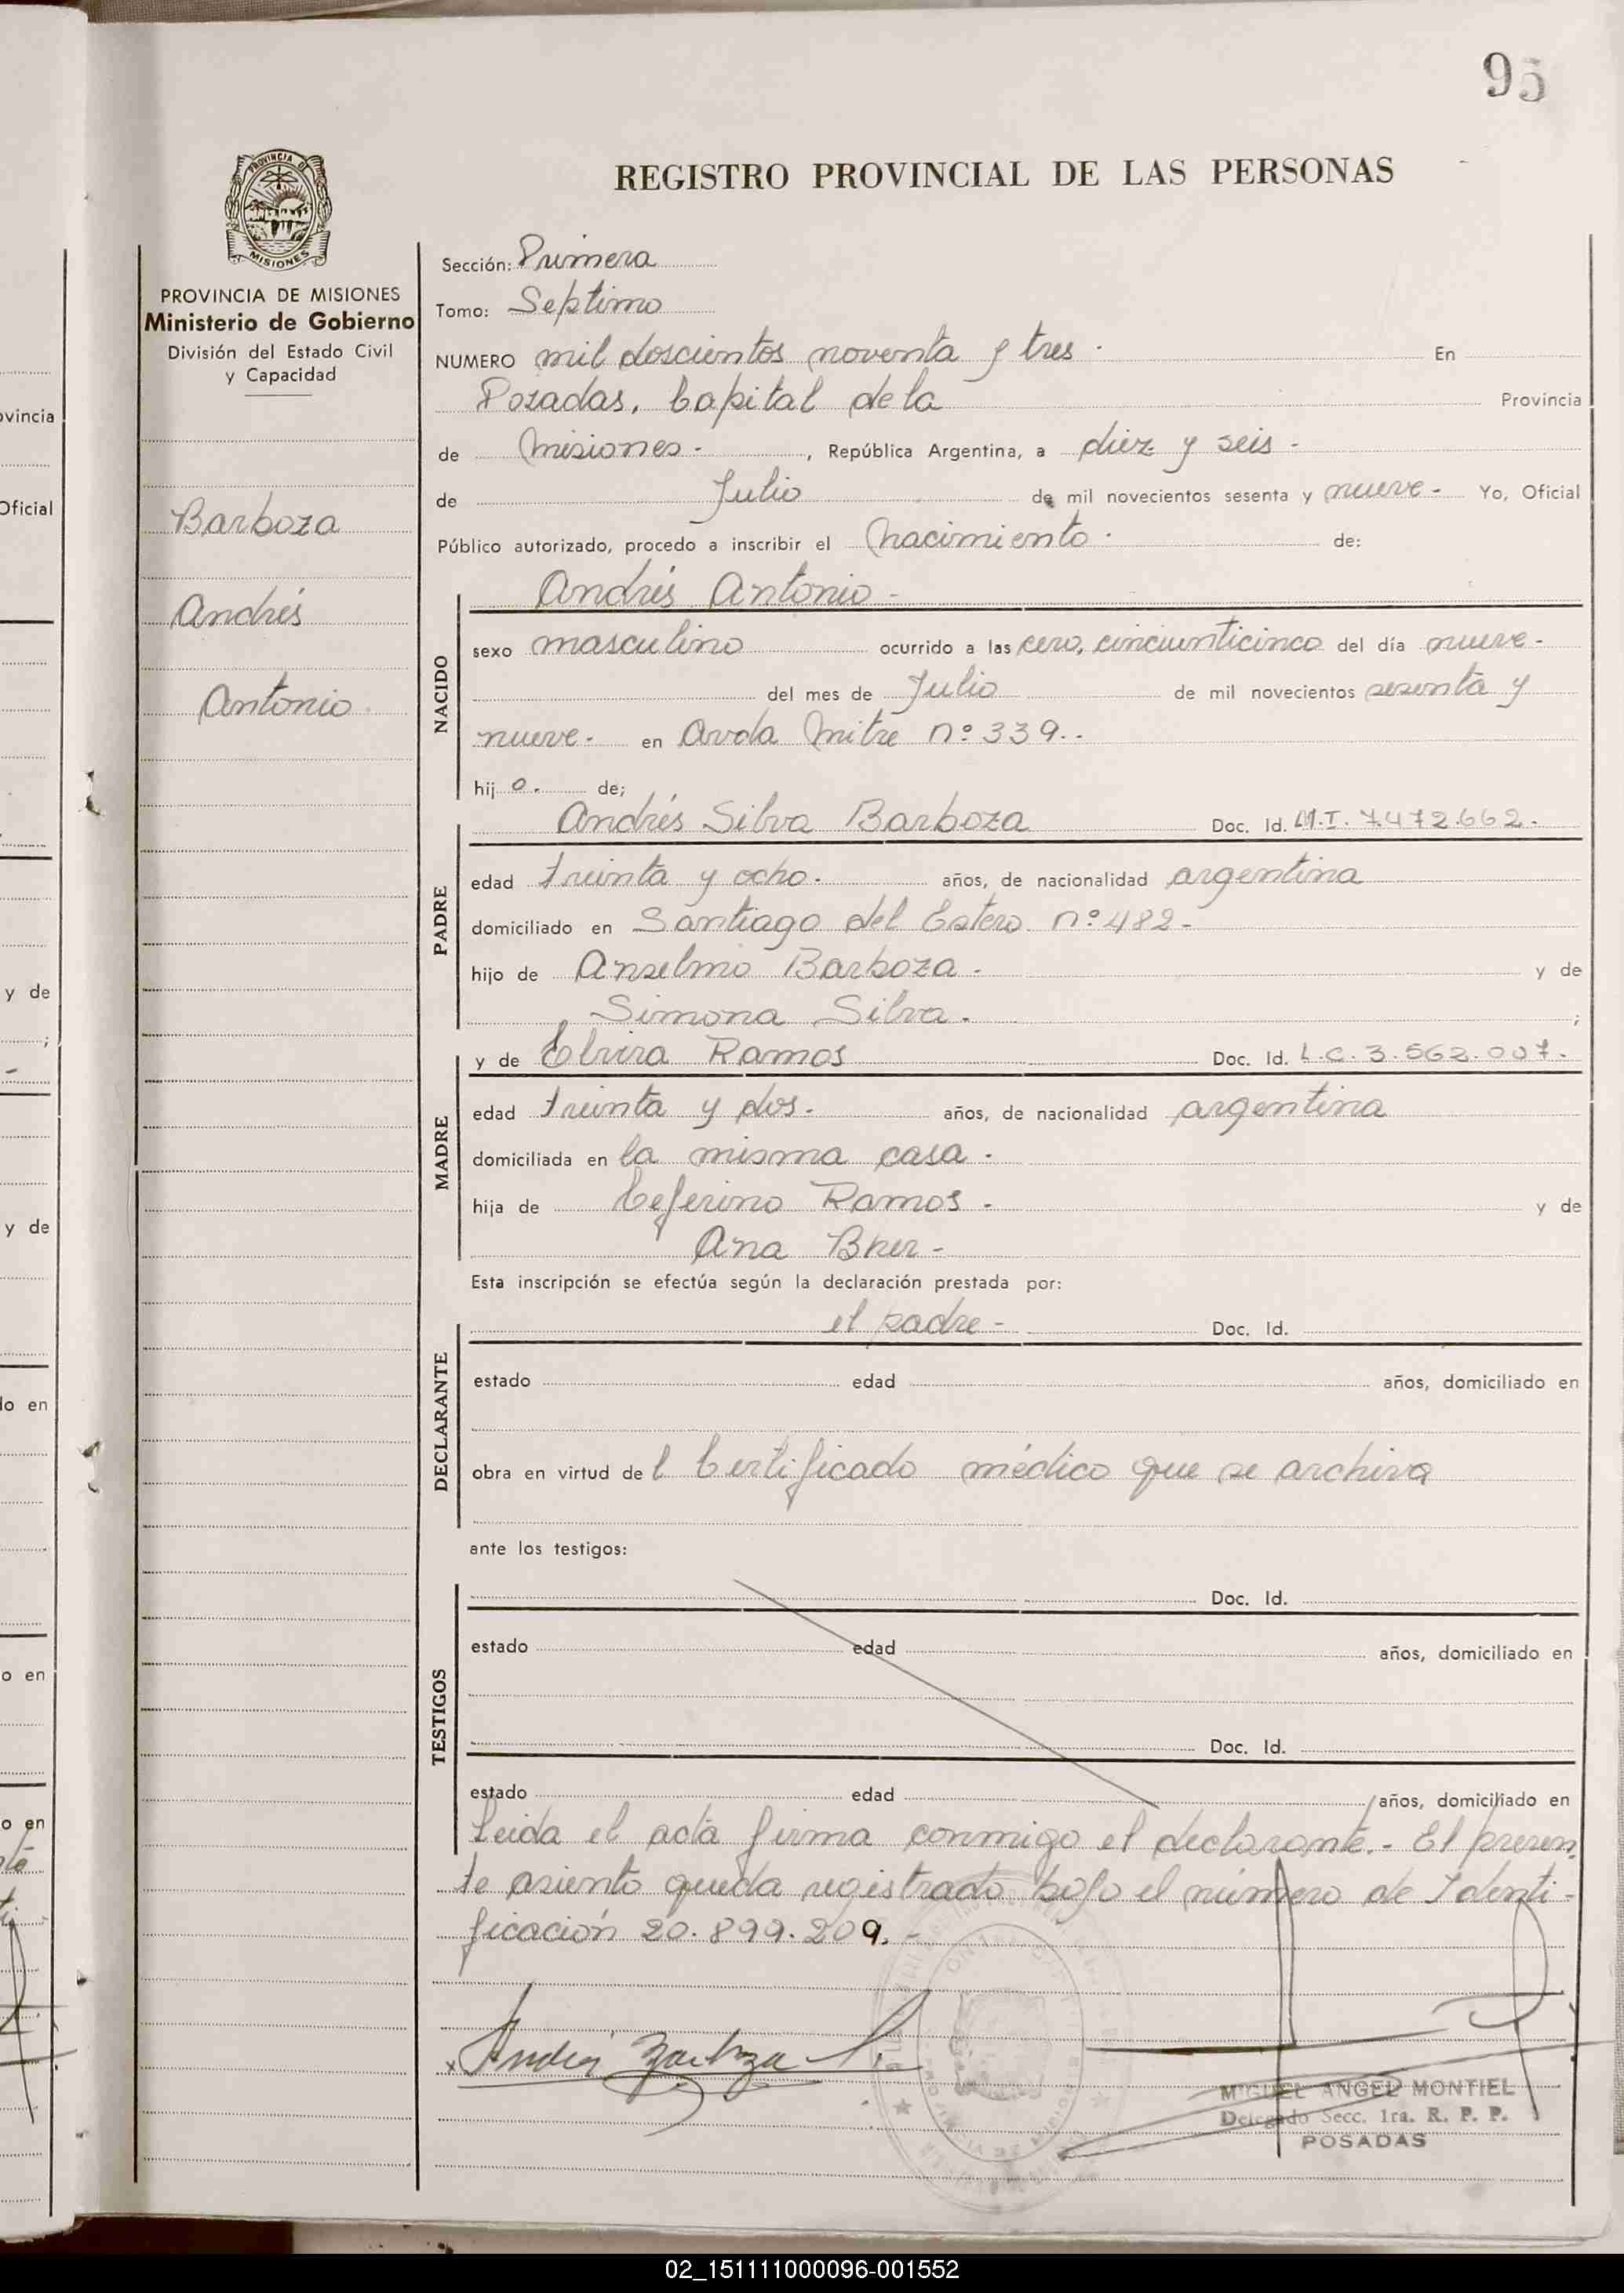 95
PROVINCIA DE
MISIONES
REGISTRO PROVINCIAL DE LAS PERSONAS
PROVINCIA DE MISIONES
Ministerio de Gobierno
División del Estado Civil
y Capacidad
Barboza
Andrés
Antonio
Sección: Primera
Tomo: Septimo
NUMERO mil doscientos noventa y tres - En
Posadas, Capital de la Provincia
de Misiones - , República Argentina, a diez y seis -
de Julio de mil novecientos sesenta y nueve - Yo, Oficial
Público autorizado, procedo a inscribir el Nacimiento - de:
Andrés Antonio -
NACIDO
sexo masculino ocurrido a las cero, cinciunticinco del día nueve -
del mes de Julio de mil novecientos sesenta y
nueve - en Avda Mitre nº 339 -
hijo - de;
Andrés Silva Barboza Doc. Id. M.I. 7.472.662 -
PADRE
edad treinta y ocho - años, de nacionalidad argentina
domiciliado en Santiago del Estero nº 482 -
hijo de Anselmo Barboza - y de
Simona Silva - ;
y de Elvira Ramos Doc. Id. L.C. 3.562.007 -
MADRE
edad treinta y dos - años, de nacionalidad argentina
domiciliada en la misma casa -
hija de Ceferino Ramos - y de
Ana -
Esta inscripción se efectúa según la declaración prestada por:
el padre - Doc. Id.
DECLARANTE
estado edad años, domiciliado en
obra en virtud de l Certificado médico que se archiva
ante los testigos:
Doc. Id.
TESTIGOS
estado edad años, domiciliado en
Doc. Id.
estado edad años, domiciliado en
Leida el acta firma conmigo el declarante. - El presen
te asiento queda registrado bajo el número de Identi-
ficación 20.899.209. -
x Andrés Barboza S.
MIGUEL ANGEL MONTIEL
Delegado Secc. 1ra. R. P. P.
POSADAS
ovincia
Oficial
y de
;
y de
do en
o en
o en
02_151111000096-001552